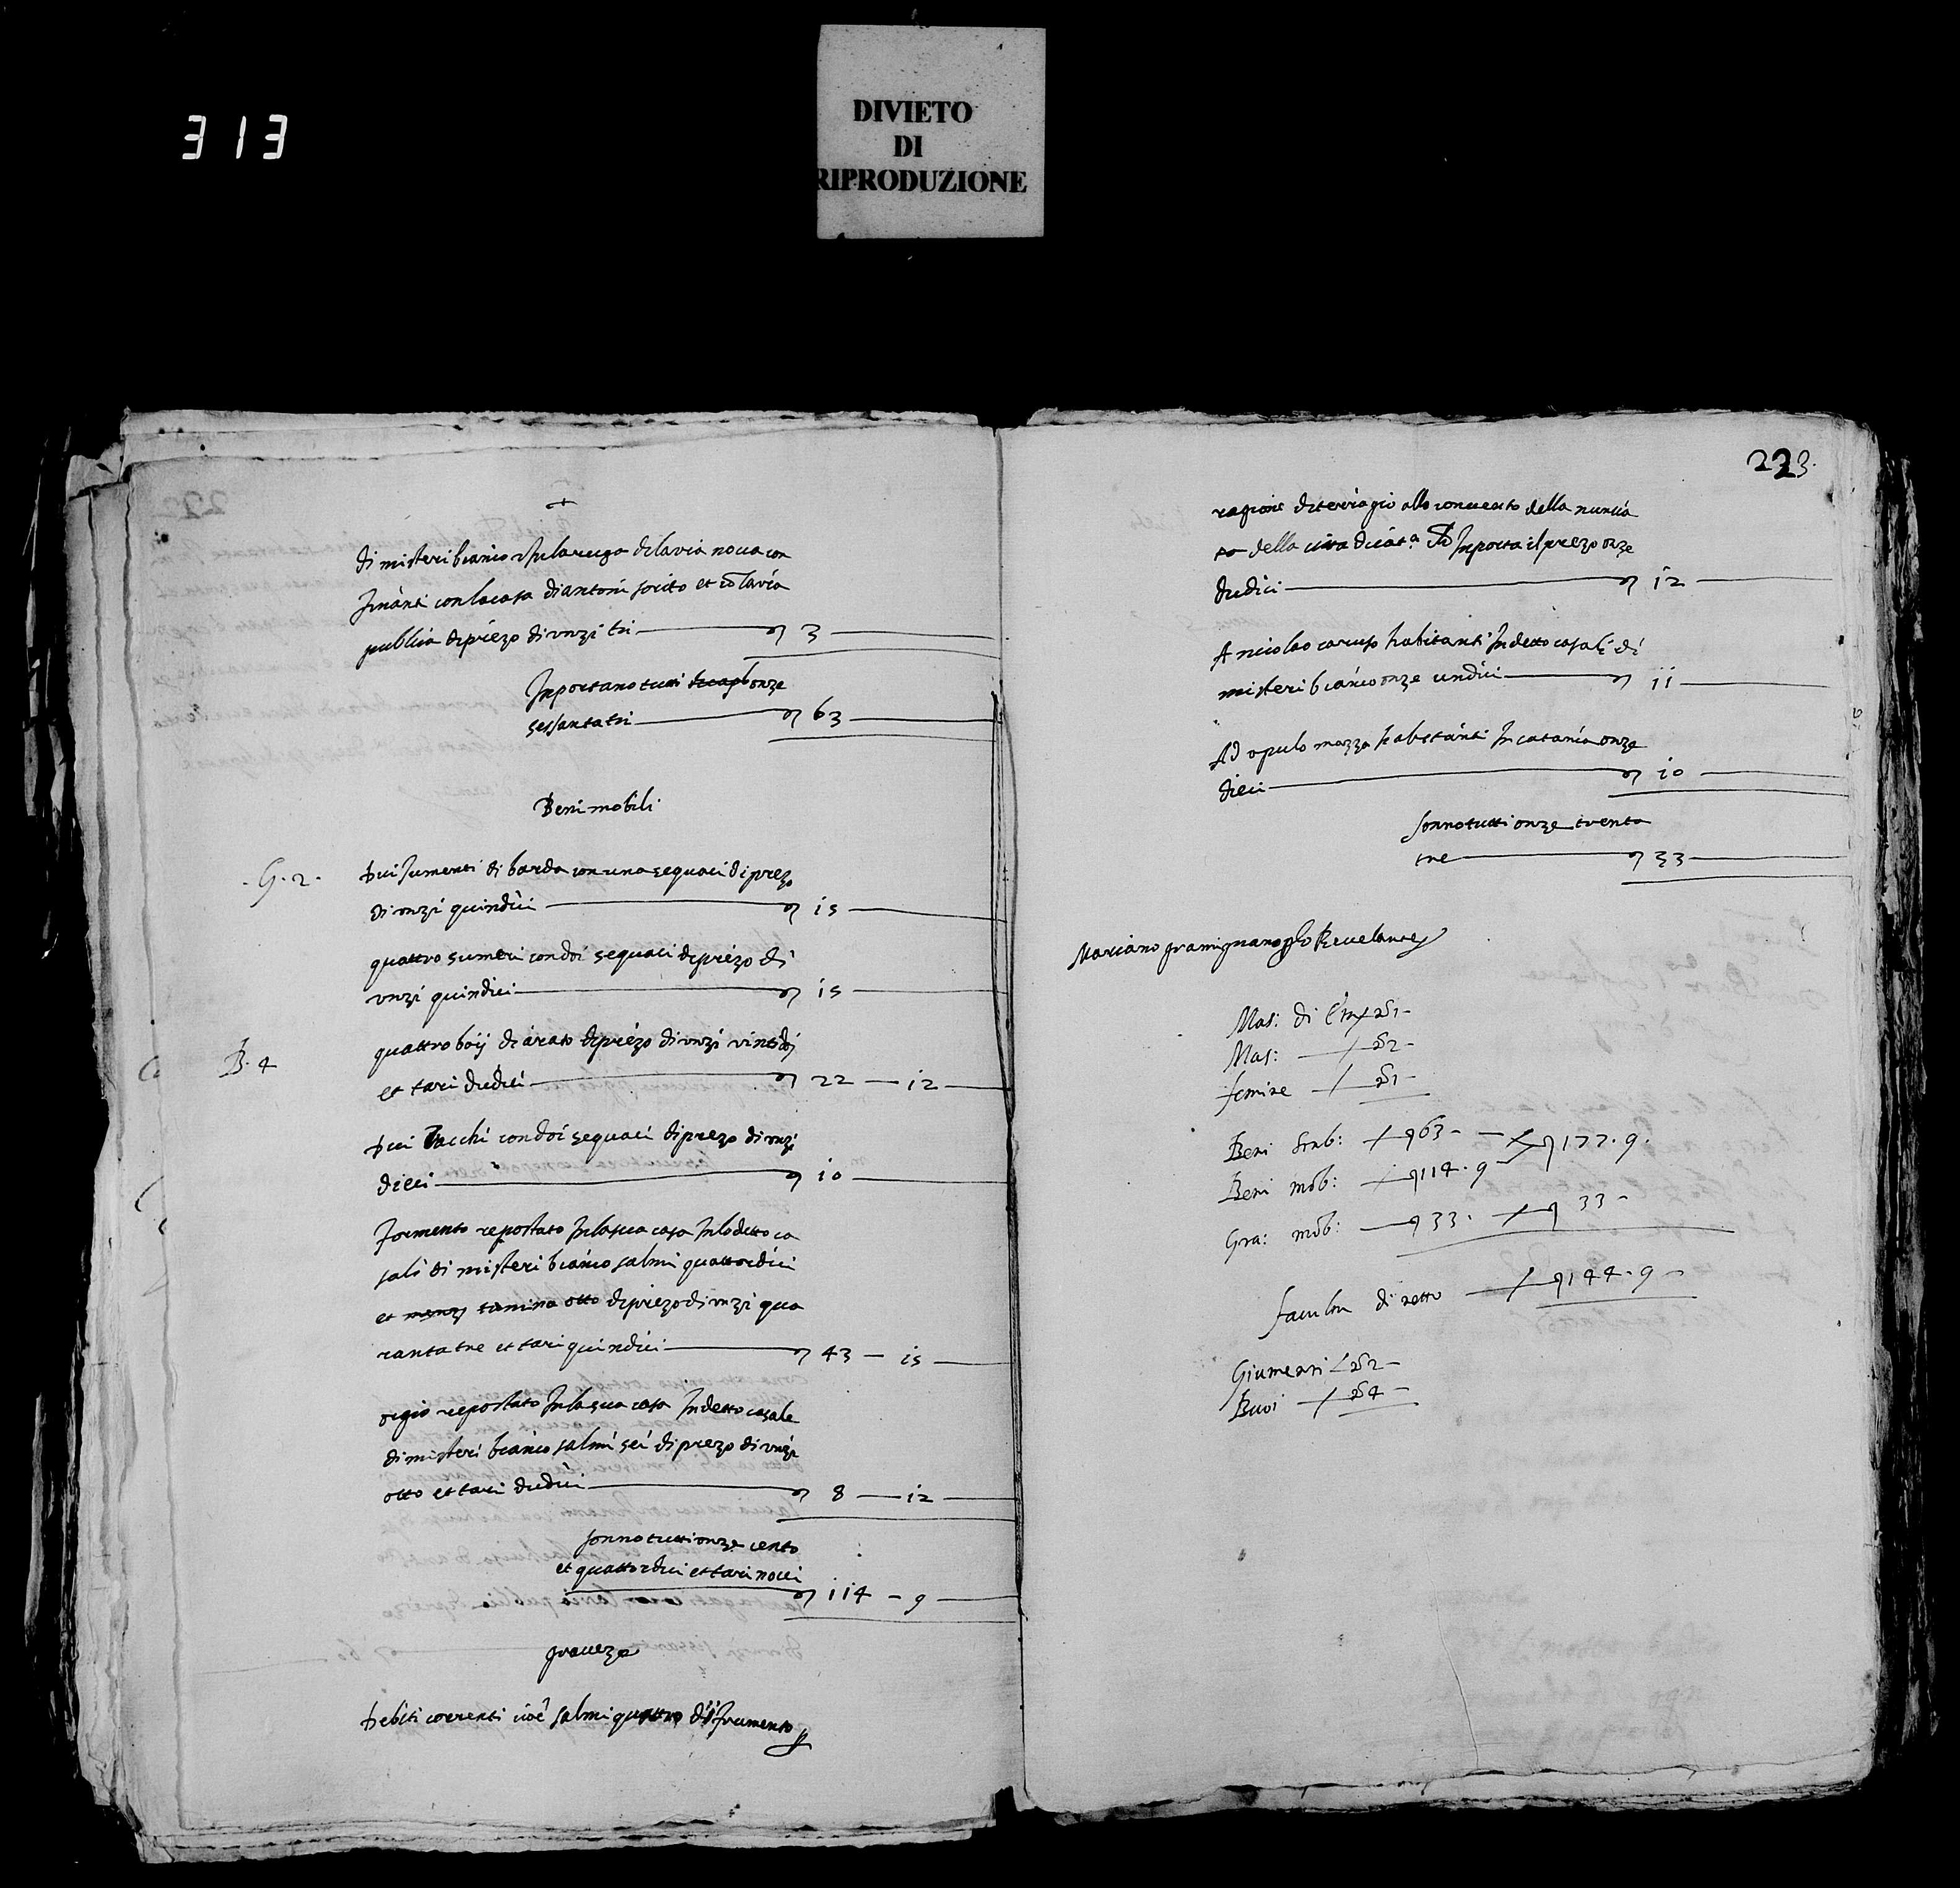 313
DIVIETO
DI
RIPRODUZIONE
+
di misteri bianco inla ruga di la via noua con
finanti con la casa di antoni scirto et co la via
publica di prezo di vnzi tri 3
Inportano tutti onze
sessanta tri 63
Beni mobili
.G. 2. Dui Jumenti di barda con una sequaci di prezo
di vnzi quindici 15
quattro sumeri con doi sequaci di prezo di
vnzi quindici 15
B. 4 quattro boij di arato di prezo di vnzi vintidoi
et tari dudici 22 — 12
Dui vacchi con doi sequaci di prezo di vnzi
dieci 10
formento repostato Inla sua casa Inlo ditto ca
sali di misteri bianco salmi quattordici
et menzu tumina otto di prezo di vnzi qua
ranta tre et tari quindici 43 — 15
orgio repostato Inla sua casa In detto casale
di misteri bianco salmi sei di prezo di vnzi
otto et tari dudici 8 — 12
sonno tutti onze cento
et quattordici et tari novi
114 - 9
gravezze
Debiti correnti cioè salmi quattro di frumento
223.
ragione di terragio allo convento della nuncia
ta della cita di Cat.a Inporta il prezo onze
dudici 12
A nicolao caruso habitanti In detto casali di
misteri bianco onze undici 11
Ad opulo mazza habitanti In catania onze
dieci 10
sonno tutti onze trenta
tre 33
Mariano gramignano Revelante
Mas: di
Mas: 2 -
femine 1 -
Beni Stab: 63 - 177. 9.
Beni mob: 114. 9
Gra: mob: 33. 33 -
facultà di netto 144. 9 -
Giumenti 2 -
Buoi 4 -